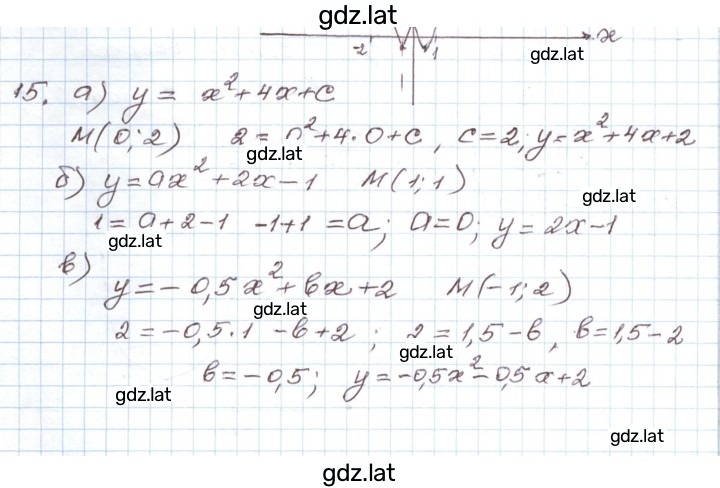 gdz.lat
-2 1 x
gdz.lat
15. а) y = x²+4x+c
M(0;2) 2 = 0²+4·0+c, c=2; y=x²+4x+2
gdz.lat
б) y=ax²+2x-1 M(1;1)
gdz.lat
1=a+2-1 -1+1=a; a=0; y=2x-1
gdz.lat
в)
y=-0,5x²+bx+2 M(-1;2)
gdz.lat
2=-0,5·1 -b+2; 2=1,5-b, b=1,5-2
gdz.lat
b=-0,5; y=-0,5x²-0,5x+2
gdz.lat
gdz.lat
gdz.lat